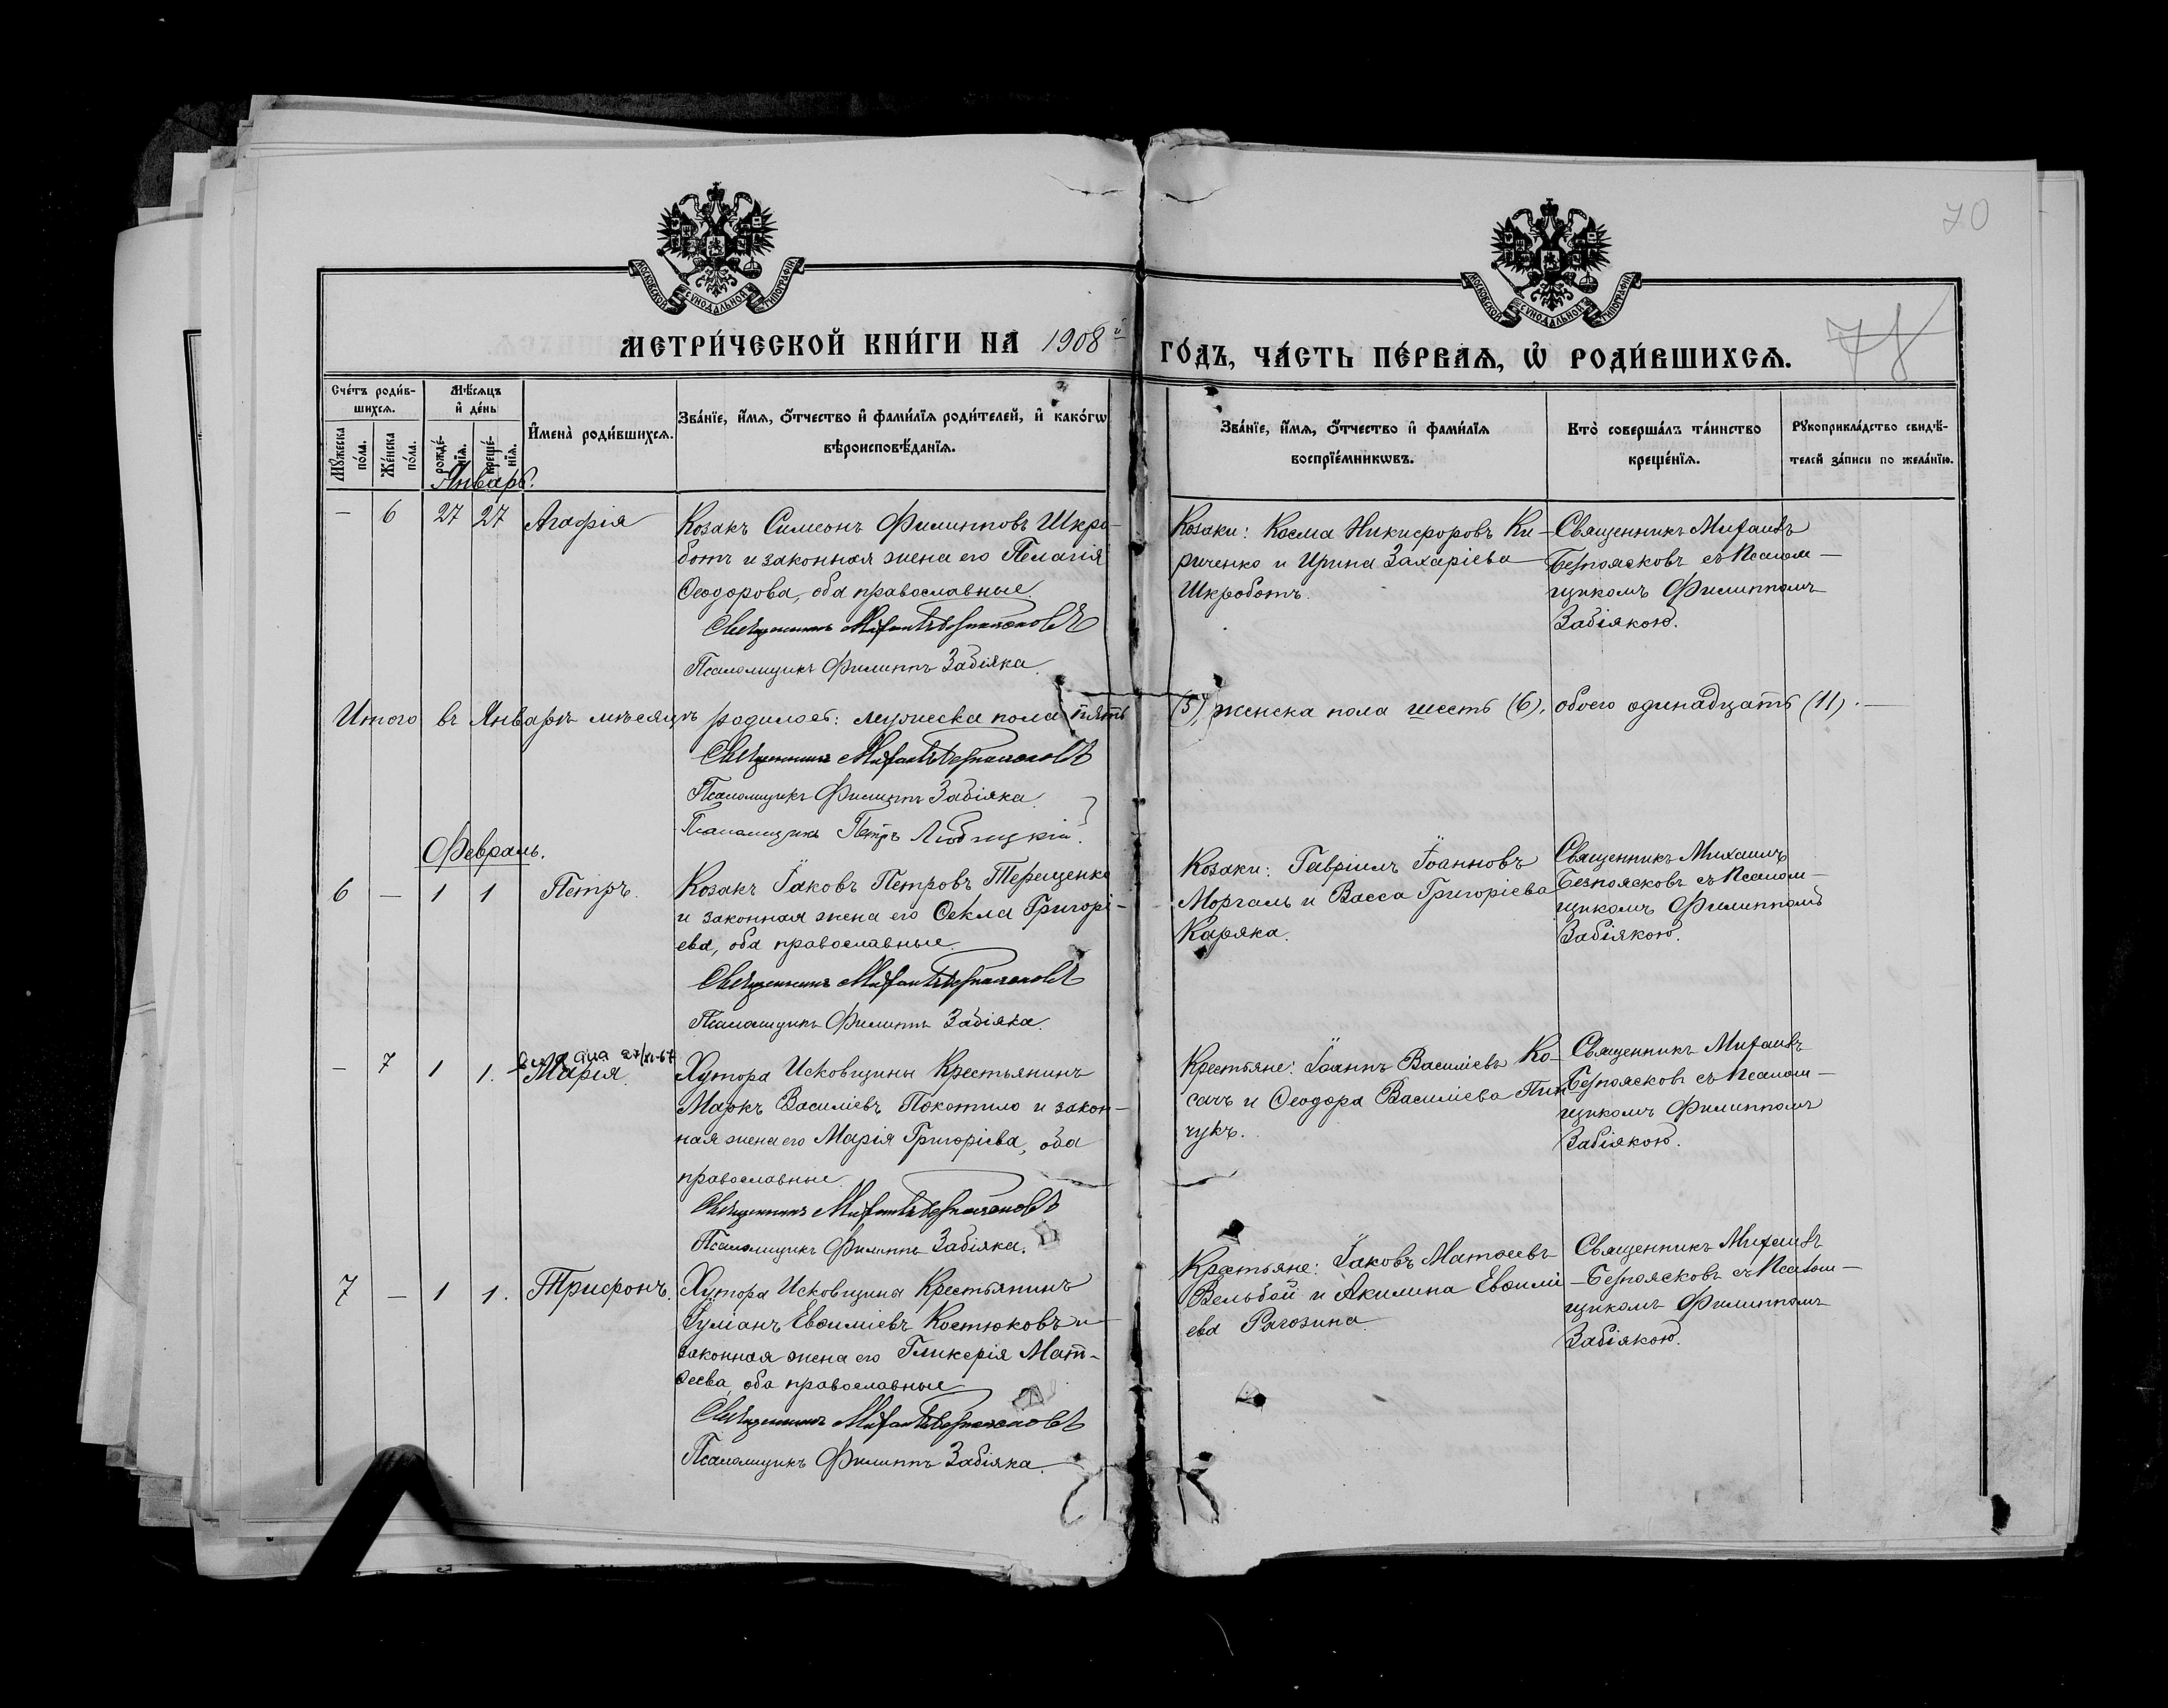 70
МОСКОВСКОЙ СѴНОДАЛЬНОЙ ТИПОГРАФІИ
МОСКОВСКОЙ СѴНОДАЛЬНОЙ ТИПОГРАФІИ
МЕТРИ́ЧЕСКОЙ КНИ́ГИ НА 1908й ГО́ДЪ, ЧА́СТЬ ПЕ́РВАѦ, Ѡ҆ РОДИ́ВШИХСѦ.
Сче́тъ роди́в-
шихсѧ.
Мѣ́сѧцъ
и҆ де́нь
И҆мена̀ роди́вшихсѧ.
Зва́нїе, и҆́мѧ, ѻ҆́тчество и҆ фами́лїѧ роди́телей, и҆ како́гѡ
вѣроисповѣ́данїѧ.
Зва́нїе, и҆́мѧ, ѻ҆́тчество и҆ фами́лїѧ
воспрїе́мникѡвъ.
Кто̀ соверша́лъ та́инство
креще́нїѧ.
Рꙋкоприкла́дство свидѣ́-
телей за́писи по жела́нїю.
Мꙋ́жеска
по́ла.
Же́нска
по́ла.
рожде́-
нїѧ.
креще́-
нїѧ.
Январь.
— 6 27 27 Агафія
Козакъ Симеонъ Филипповъ Шкро-
ботъ и законная жена его Пелагія
Ѳеодорова, оба православные.
Священникъ Михаилъ Безпоясковъ
Псаломщикъ Филиппъ Забіяка.
Козаки: Косма Никифоровъ Ки-
риченко и Ирина Захаріева
Шкроботъ.
Священникъ Михаилъ
Безпоясковъ съ Псалом-
щикомъ Филиппомъ
Забіякою.
Итого въ Январѣ мѣсяцѣ родилось: мужеска пола пять (5), женска пола шесть (6), обоего одинадцать (11).
Священникъ Михаилъ Безпоясковъ
Псаломщикъ Филиппъ Забіяка.
Псаломщикъ Петръ
Февраль.
6 — 1 1 Петръ.
Козакъ Іаковъ Петровъ Терещенко
и законная жена его Ѳекла Григорі-
ева, оба православные.
Священникъ Михаилъ Безпоясковъ
Псаломщикъ Филиппъ Забіяка.
Козаки: Гавріилъ Іоанновъ
Моргаль и Васса Григоріева
Каряка.
Священникъ Михаилъ
Безпоясковъ съ Псалом-
щикомъ Филиппомъ
Забіякою.
27/XI-67
— 7 1 1. Марія.
Хутора Исковщины Крестьянинъ
Маркъ Василіевъ Покотило и закон-
ная жена его Марія Григоріева, оба
православные.
Священникъ Михаилъ Безпоясковъ
Псаломщикъ Филиппъ Забіяка.
Крестьяне: Іоаннъ Василіевъ Ко-
сачъ и Ѳеодора Василіева Пин
чукъ.
Священникъ Михаилъ
Безпоясковъ съ Псалом-
щикомъ Филиппомъ
Забіякою.
7 — 1 1. Трифонъ.
Хутора Исковщины Крестьянинъ
Іуліанъ Евѳиміевъ Костюковъ и
законная жена его Гликерія Мат-
ѳеева, оба православные
Священникъ Михаилъ Безпоясковъ
Псаломщикъ Филиппъ Забіяка.
Крестьяне: Іаковъ Матѳеевъ
Вельбой и Акилина Евѳимі-
ева Рагозина.
Священникъ Михаилъ
Безпоясковъ съ Псалом-
щикомъ Филиппомъ
Забіякою.